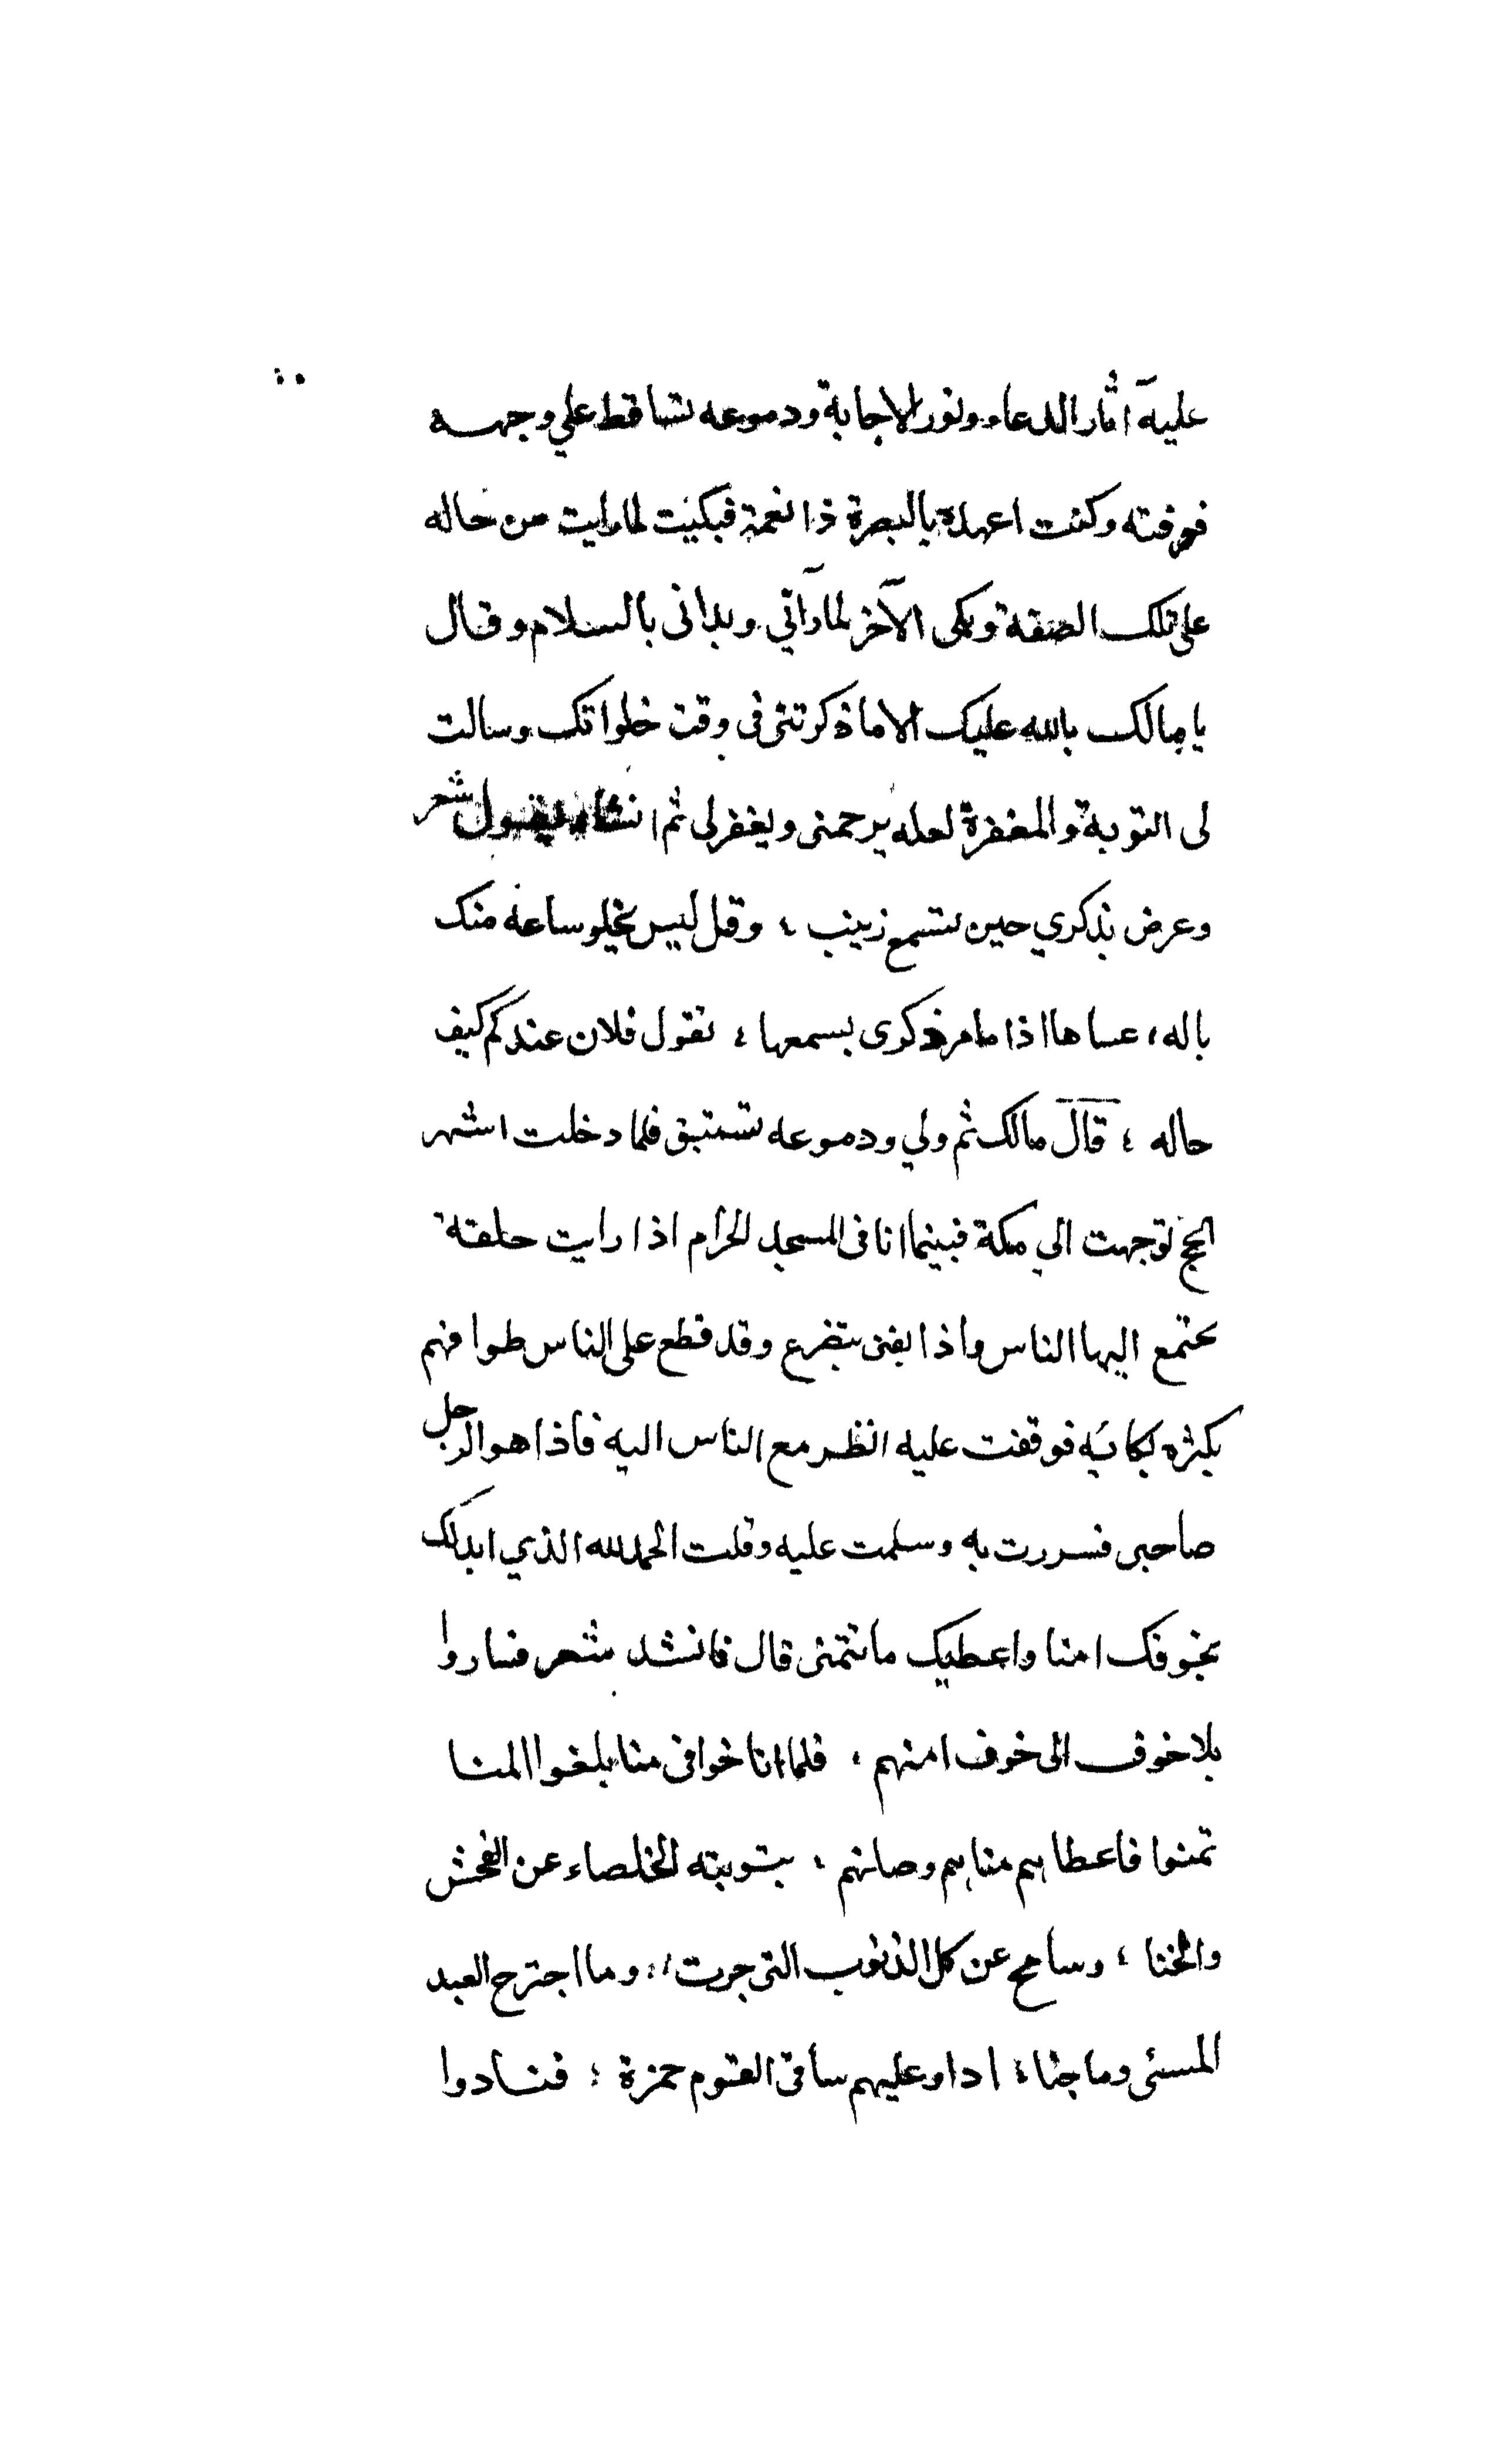 عليه آثار الدعاء ونور الاجابة ودموعه تساقط علي وجهه
فعرفته وكنت اعهده بالبصرة ذا نعمة فبكيت لما رايت من حاله
على تلك الصفة وبكى الآخر لما رآني وبداني بالسلام وقال
يا مالك بالله عليك الا ما ذكرتنى فى وقت خلواتك وسالت
لى التوبة والمغفرة لعله يرحمنى ويغفر لى ثم انشاء يقول شعر
وعرض بذكري حين تسمع زينب ، وقل ليس يخلو ساعة منك
باله ، عساها اذا ما مر ذكرى بسمعها ، تقول فلان عندكم كيف
حاله ، قال مالك ثم ولي ودموعه تستبق فلما دخلت اشهر
الحج توجهت الي مكة فبينما انا فى المسجد الحرام اذا رايت حلقة
يجتمع اليها الناس واذا بفتى يتضرع وقد قطع على الناس طوافهم
بكثرة بكائه فوقفت عليه انظر مع الناس اليه فاذا هو الرجل
صاحبى فسررت به وسلمت عليه وقلت الحمد لله الذي ابدلك
بخوفك امنا واعطيك ما تتمنى قال فانشد شعر فساروا
بلا خوف الى خوف امنهم ، فلما اناخوا فى منا بلغوا المنا
تمنوا فاعطاهم مناهم وصانهم ، بتوبته الخلصاء عن الفحش
والخنا ، وسامح عن كل الذنوب التى جرت ، وما اجترح العبد
المسئى وما جنا ، اداو عليهم ساقى القوم حمزة ، فنادوا